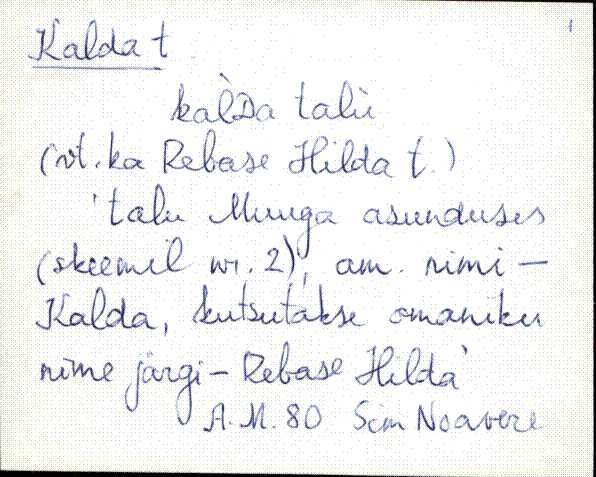 1
Kalda t
kal̀Da talu
(vt. ka Rebase Hilda t.)
'talu Muuga asunduses
(skeemil nr. 2), am. nimi –
Kalda, kutsutakse omaniku
nime järgi – Rebase Hilda'
A.M. 80 Sim Noavere